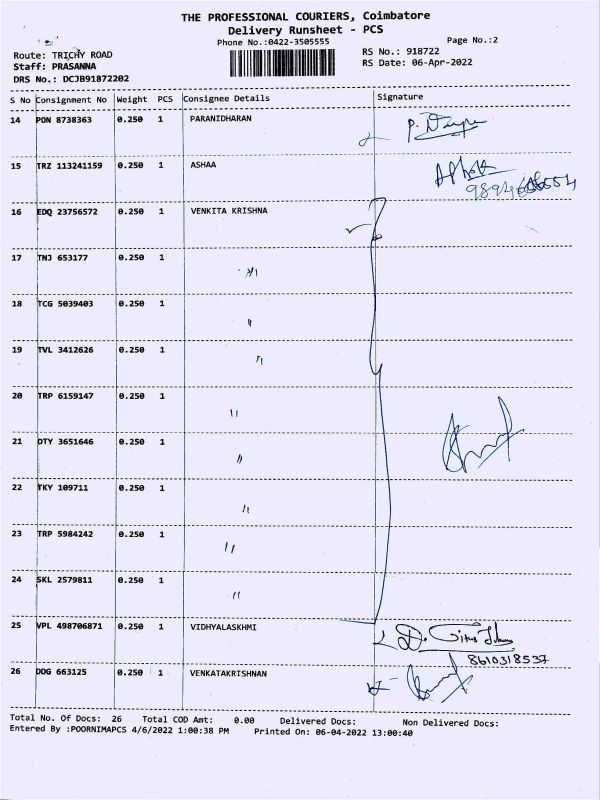 THE PROFESSIONAL COURIERS, Coimbatore
Delivery Runsheet - PCS
Phone No.:0422-3505555
Page No.:2
Route: TRICHY ROAD
RS No.: 918722
Staff: PRASANNA
RS Date: 06-Apr-2022
DRS No.: DCJB91872202
S No Consignment No Weight PCS Consignee Details Signature
14 PON 8738363 0.250 1 PARANIDHARAN
15 TRZ 113241159 0.250 1 ASHAA
16 EDQ 23756572 0.250 1 VENKITA KRISHNA
17 TNJ 653177 0.250 1 〃
18 TCG 5039403 0.250 1 〃
19 TVL 3412626 0.250 1 〃
20 TRP 6159147 0.250 1 〃
21 OTY 3651646 0.250 1 〃
22 TKY 109711 0.250 1 〃
23 TRP 5984242 0.250 1 〃
24 SKL 2579811 0.250 1 〃
25 VPL 498706871 0.250 1 VIDHYALASKHMI
8610318537
26 DDG 663125 0.250 1 VENKATAKRISHNAN
Total No. Of Docs: 26 Total COD Amt: 0.00 Delivered Docs: Non Delivered Docs:
Entered By :POORNIMAPCS 4/6/2022 1:00:38 PM Printed On: 06-04-2022 13:00:40